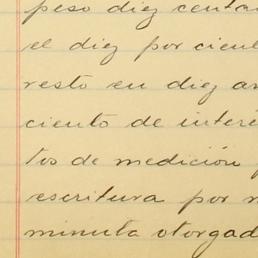 peso diez centa
el diez por cient
resto en diez a
ciento de interé
tos de medición
escritura por
minuta otorgad